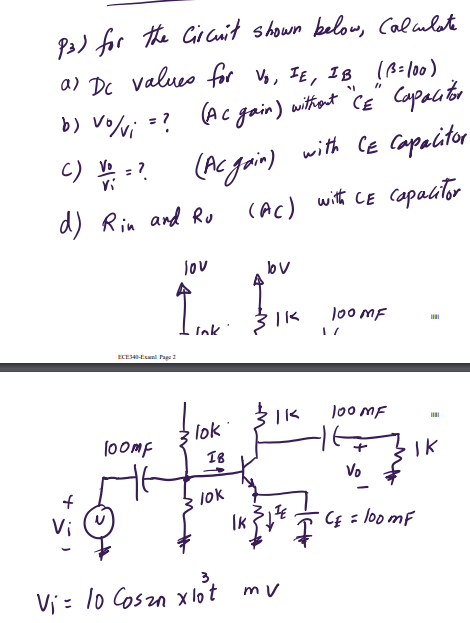 P3) for the Circuit shown below, Calculate
a) DC values for Vo, IE, IB (β=100)
b) Vo/Vi = ? (AC gain) without "CE" Capacitor
c) Vo/Vi = ? (AC gain) with CE Capacitor
d) Rin and Ro (AC) with CE Capacitor
10V 10V
10K 1K 100MF
ECE340-Exam1 Page 2
10K 1K 100MF
100MF IB + 1K
Vo
10K -
+ Vi - 1K IE CE = 100MF
Vi = 10 Cos2π x10³t mV